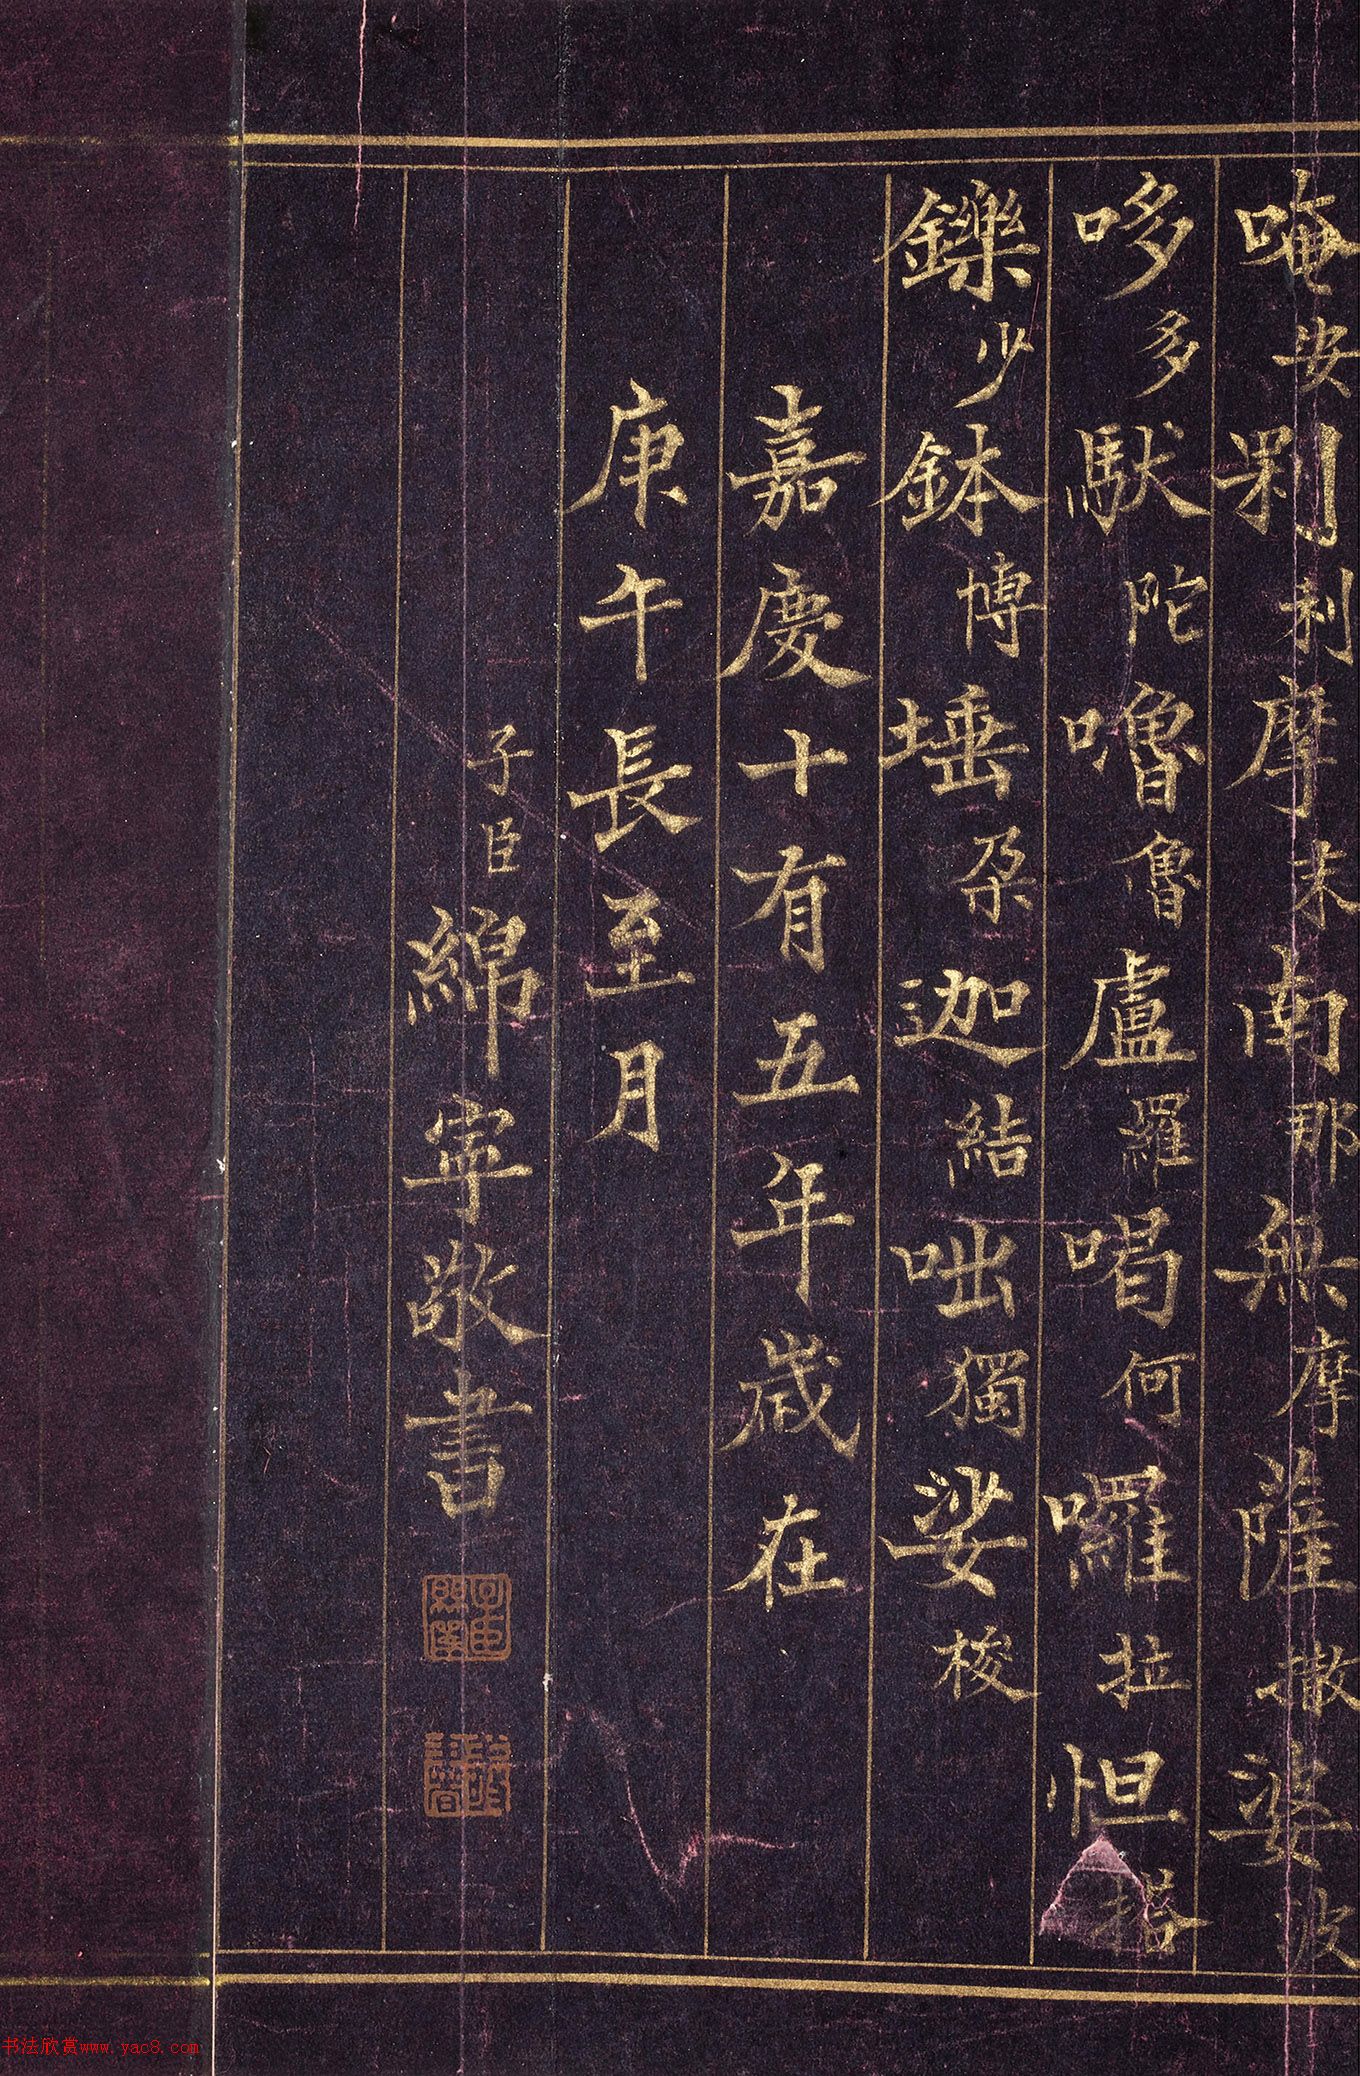 唵安剁利摩末南那無摩薩撒婆波
哆多馱陀嚕魯盧羅喝何囉拉怛搭
鑠少鉢博埵朵迦結咄獨娑梭
嘉慶十有五年歲在
庚午長至月
子臣綿寧敬書
书法欣赏www.yac8.com